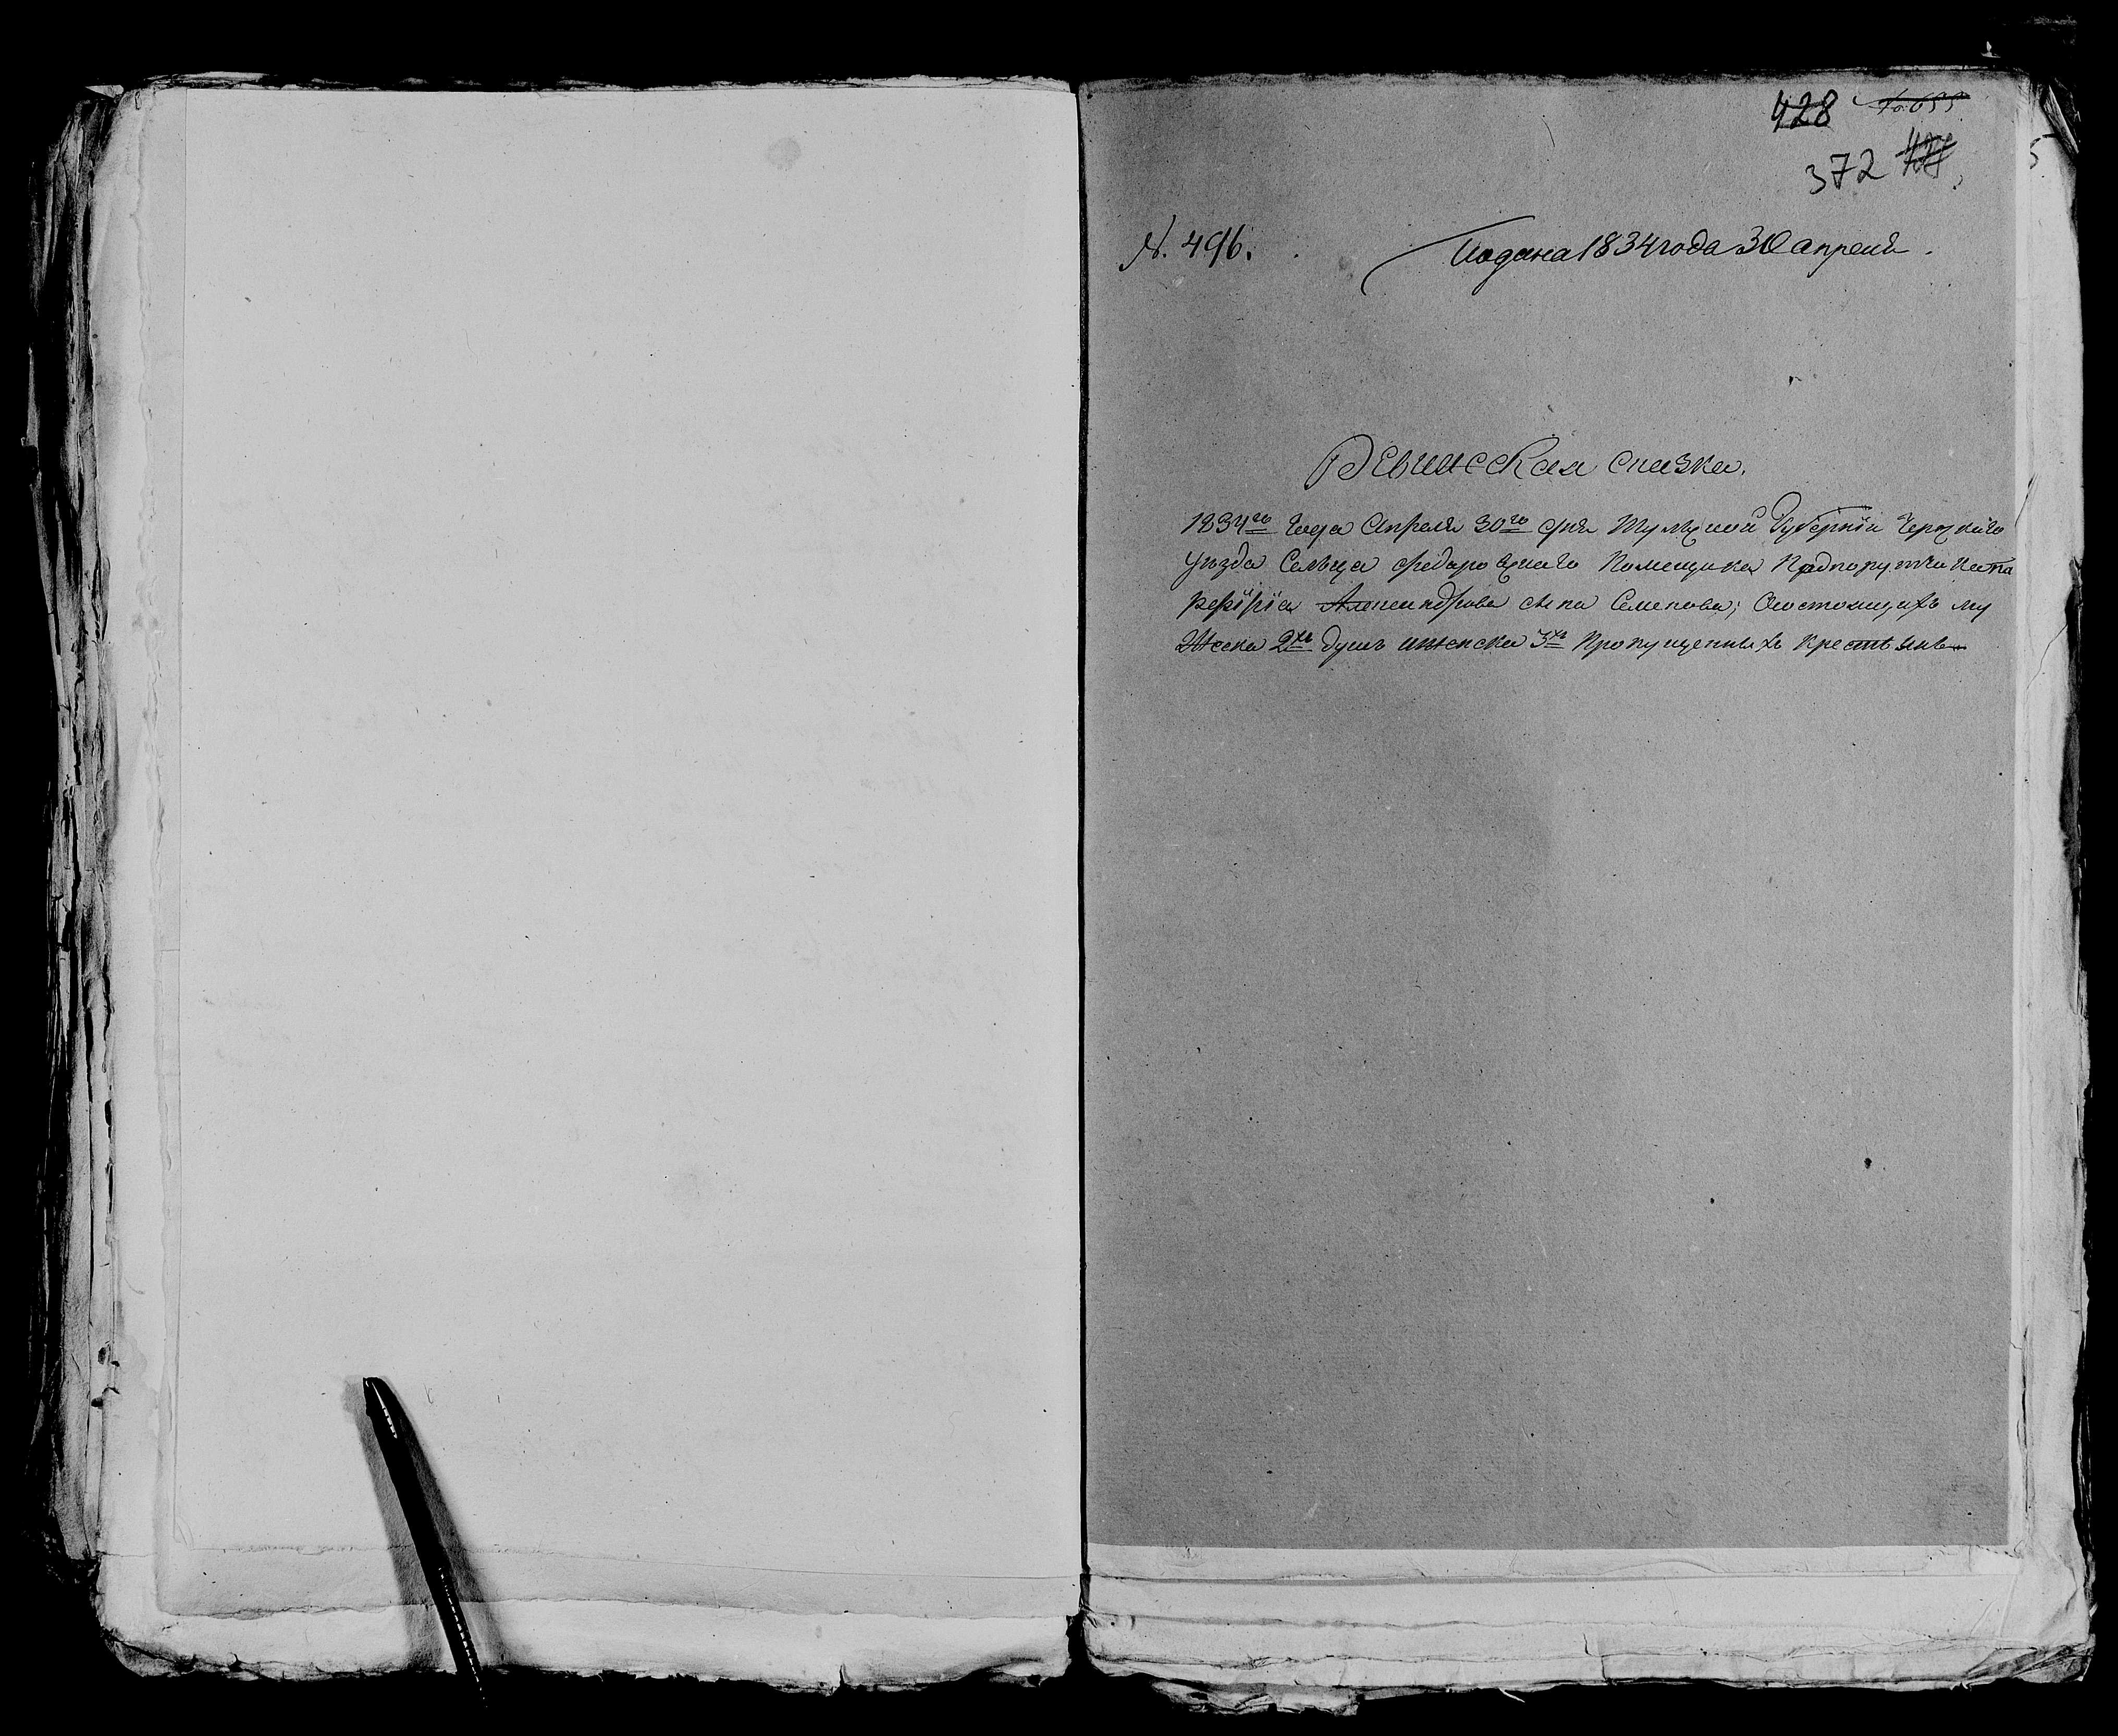 428
372
N. 496.
Подана 1834 года 30 апреля.
Ревижская сказка.
1834го Года Апреля 30го дня Тульской Губернии
уезда Сельца Федаровскаго Помещика Падпоручика
Александрова сына Семенова; Осостоящихъ му
жеска 2хъ душъ иженска 3хъ Пропущенныхъ Крестьянъ